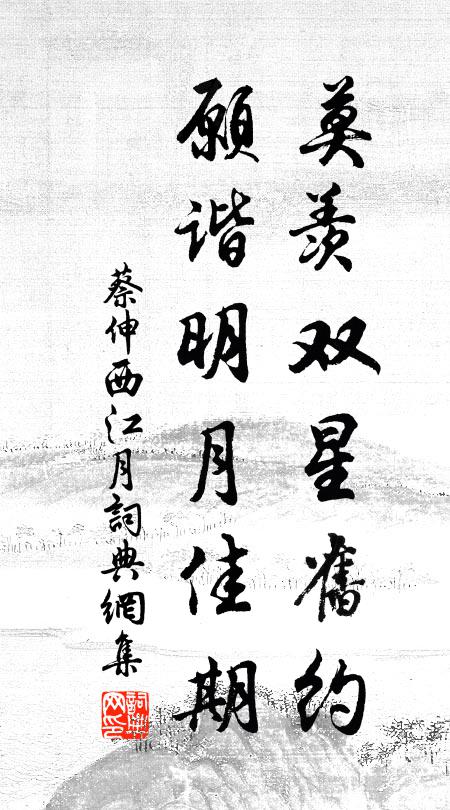 莫羡双星舊约
願谐明月佳期
蔡伸西江月詞典網集